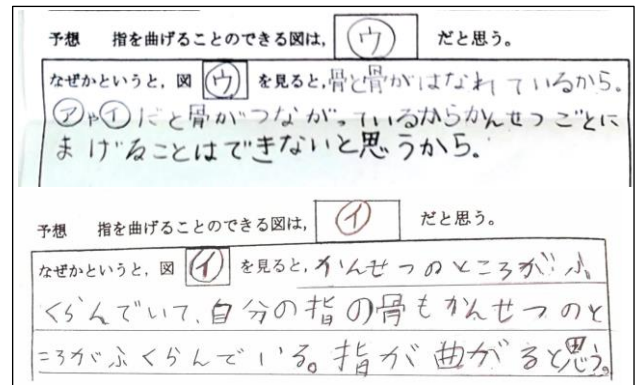 予想　指を曲げることのできる図は, ㋒ だと思う。
なぜかというと, 図 ㋒ を見ると, 骨と骨がはなれているから。
㋐や㋑だと骨がつながっているからかんせつごとに
まげることはできないと思うから。
予想　指を曲げることのできる図は, ㋑ だと思う。
なぜかというと, 図 ㋑ を見ると, かんせつのところがふ
くらんでいて、自分の指の骨もかんせつのと
ころがふくらんでいる。指が曲がると思う。